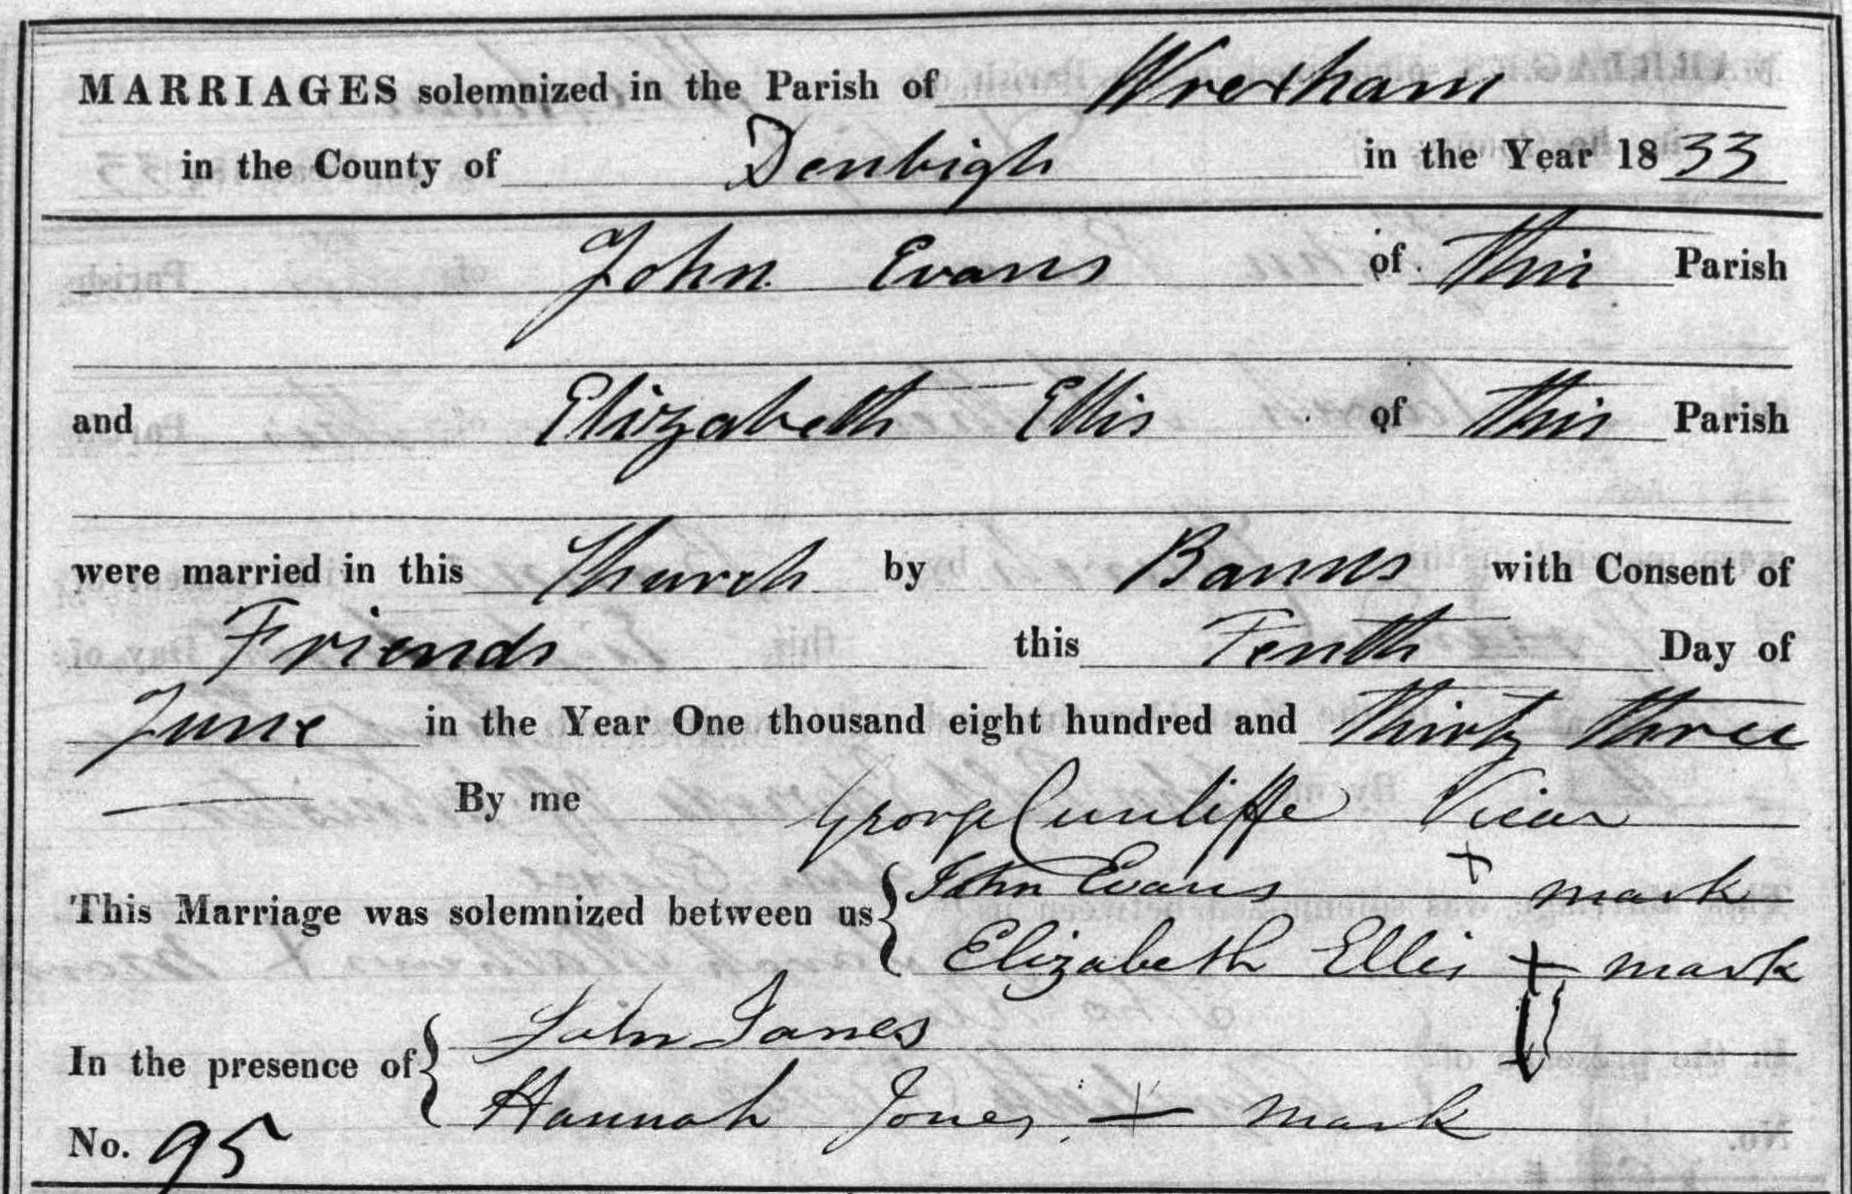 MARRIAGES solemnized in the Parish of Wrexham
in the County of Denbigh in the Year 1833
John Evans of this Parish
and Elizabeth Ellis of this Parish
were married in this Church by Banns with Consent of
Friends this Tenth Day of
June in the Year One thousand eight hundred and thirty three
By me George Cunliffe Vicar
This Marriage was solemnized between us { John Evans + mark
Elizabeth Ellis + mark
In the presence of { John Jones
Hannah Jones + mark
No. 95